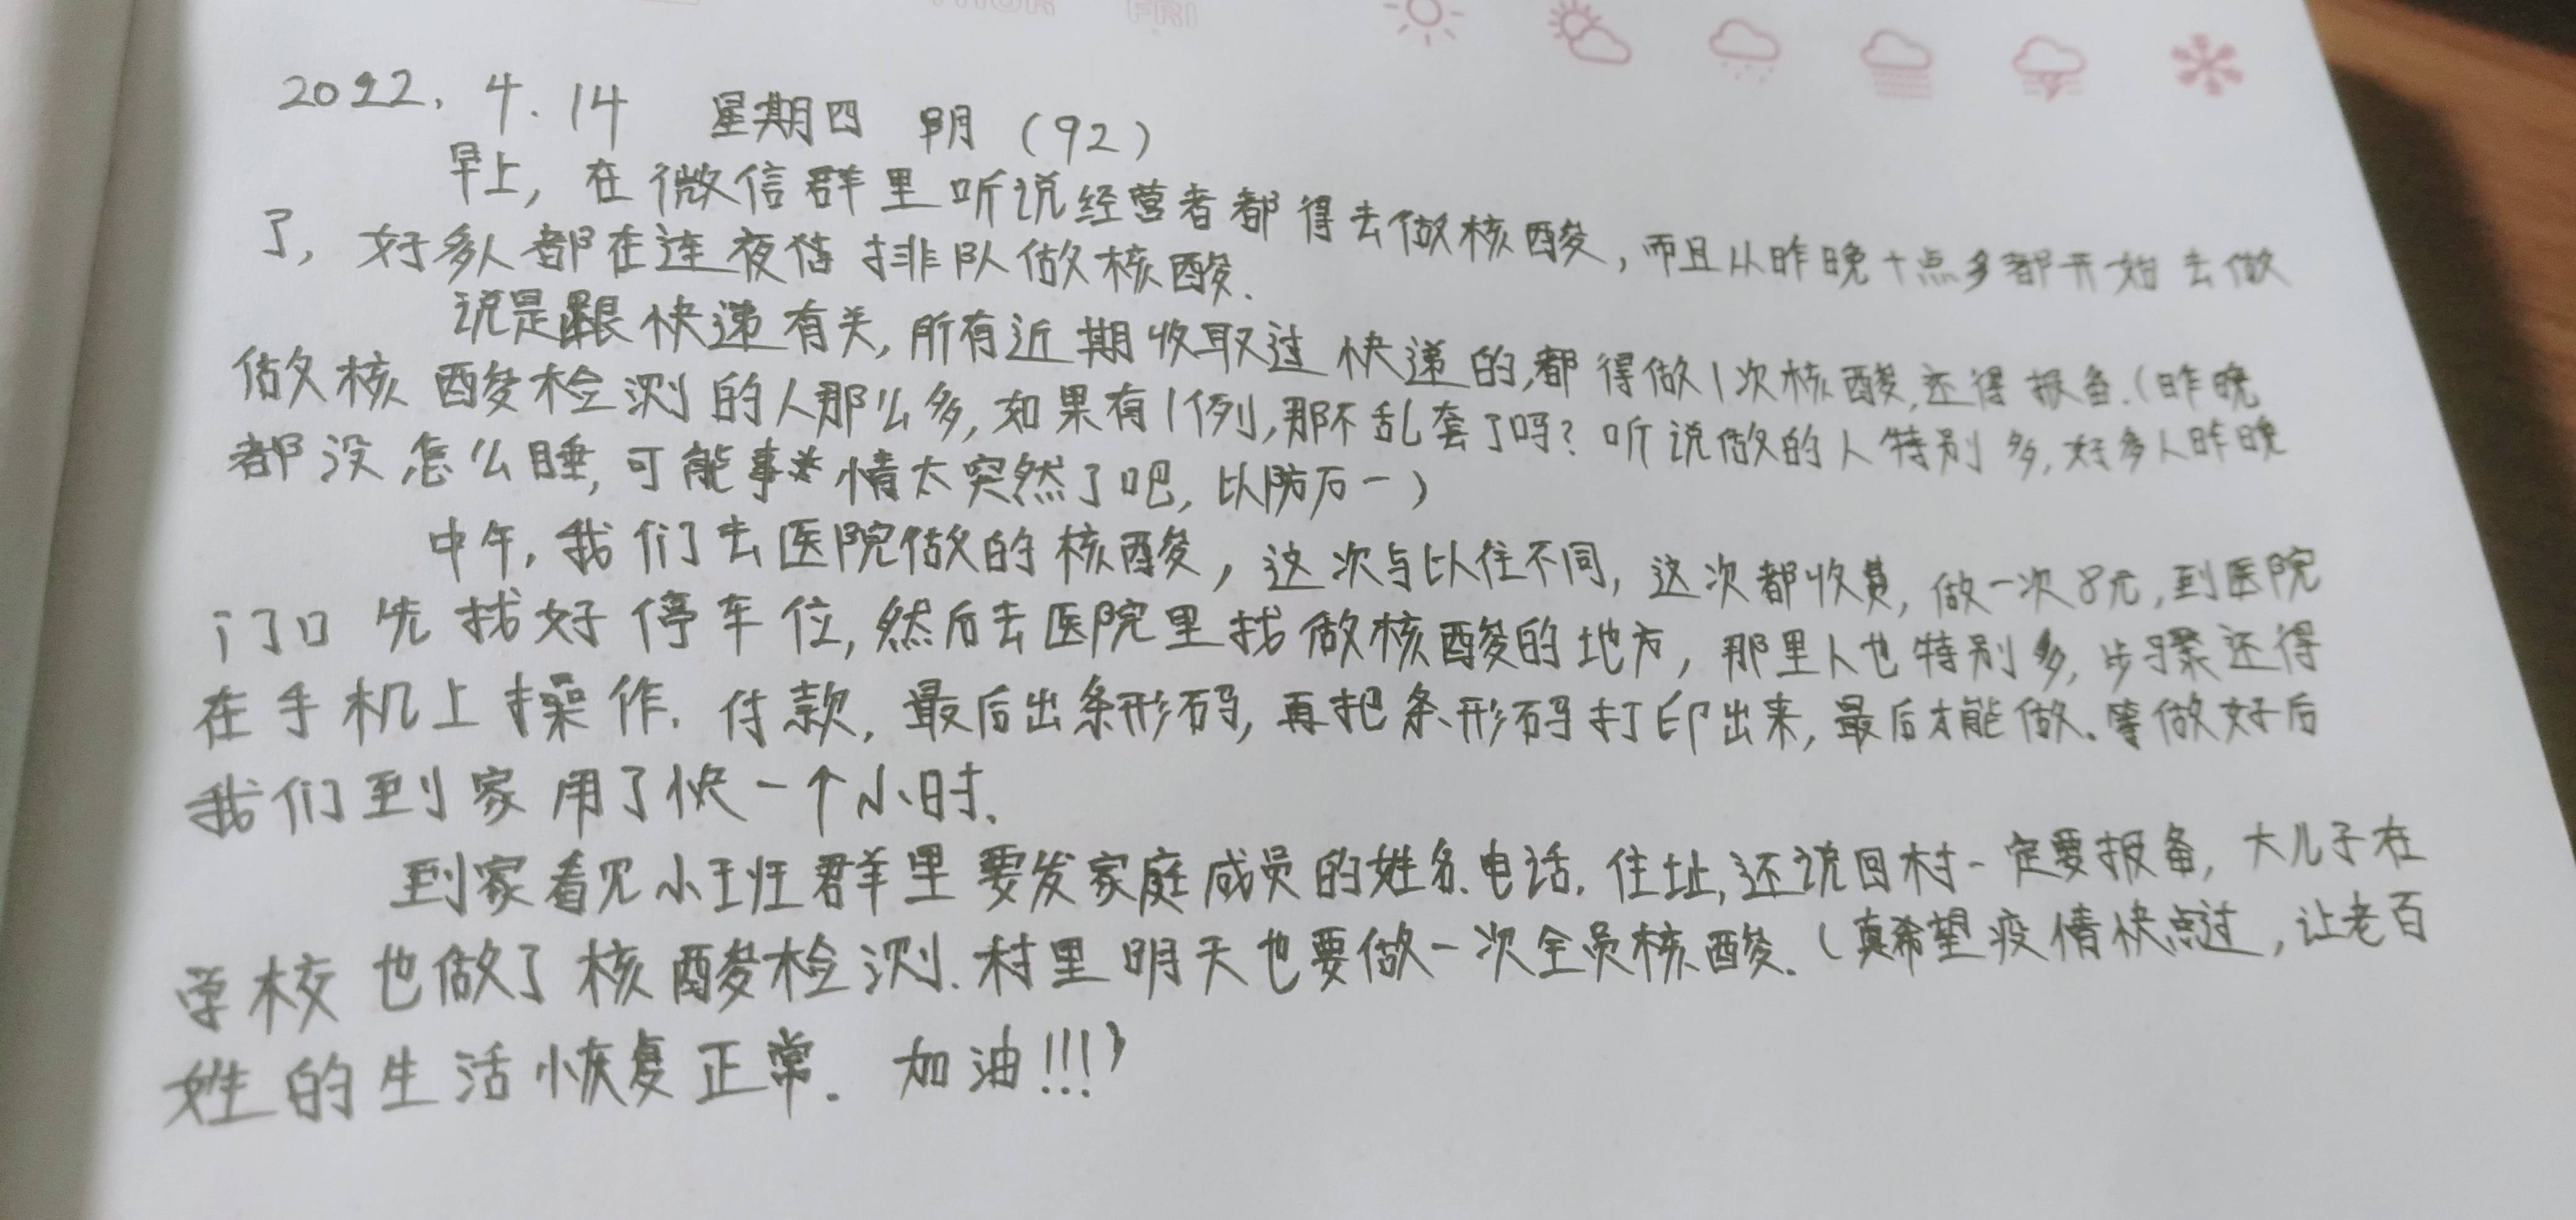 THUR FRI
2022.4.14 星期四 阴（92）
早上，在微信群里听说经营者都得去做核酸，而且从昨晚十点多都开始去做
了，好多人都在连夜 排队做核酸.
说是跟快递有关，所有近期收取过快递的，都得做1次核酸，还得报备.（昨晚
做核酸检测的人那么多，如果有1例，那不乱套了吗？听说做的人特别多，好多人昨晚
都没怎么睡，可能事情太突然了吧，以防万一）
中午，我们去医院做的核酸，这次与以往不同，这次都收费，做一次8元，到医院
门口先找好停车位，然后去医院里找做核酸的地方，那里人也特别多，步骤还得
在手机上操作.付款，最后出条形码，再把条形码打印出来，最后才能做。等做好后
我们到家用了快一个小时.
到家看见小班群里要发家庭成员的姓名.电话.住址，还说回村一定要报备，大儿子在
学校也做了核酸检测.村里明天也要做一次全员核酸.（真希望疫情快点过，让老百
姓的生活恢复正常.加油!!!）